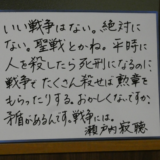 いい戦争はない。絶対に
ない。聖戦とかね。平時に
人を殺したら死刑になるのに、
戦争でたくさん殺せば勲章を
もらったりする。おかしくないですか。
矛盾があるんです。戦争には。
瀬戸内寂聴